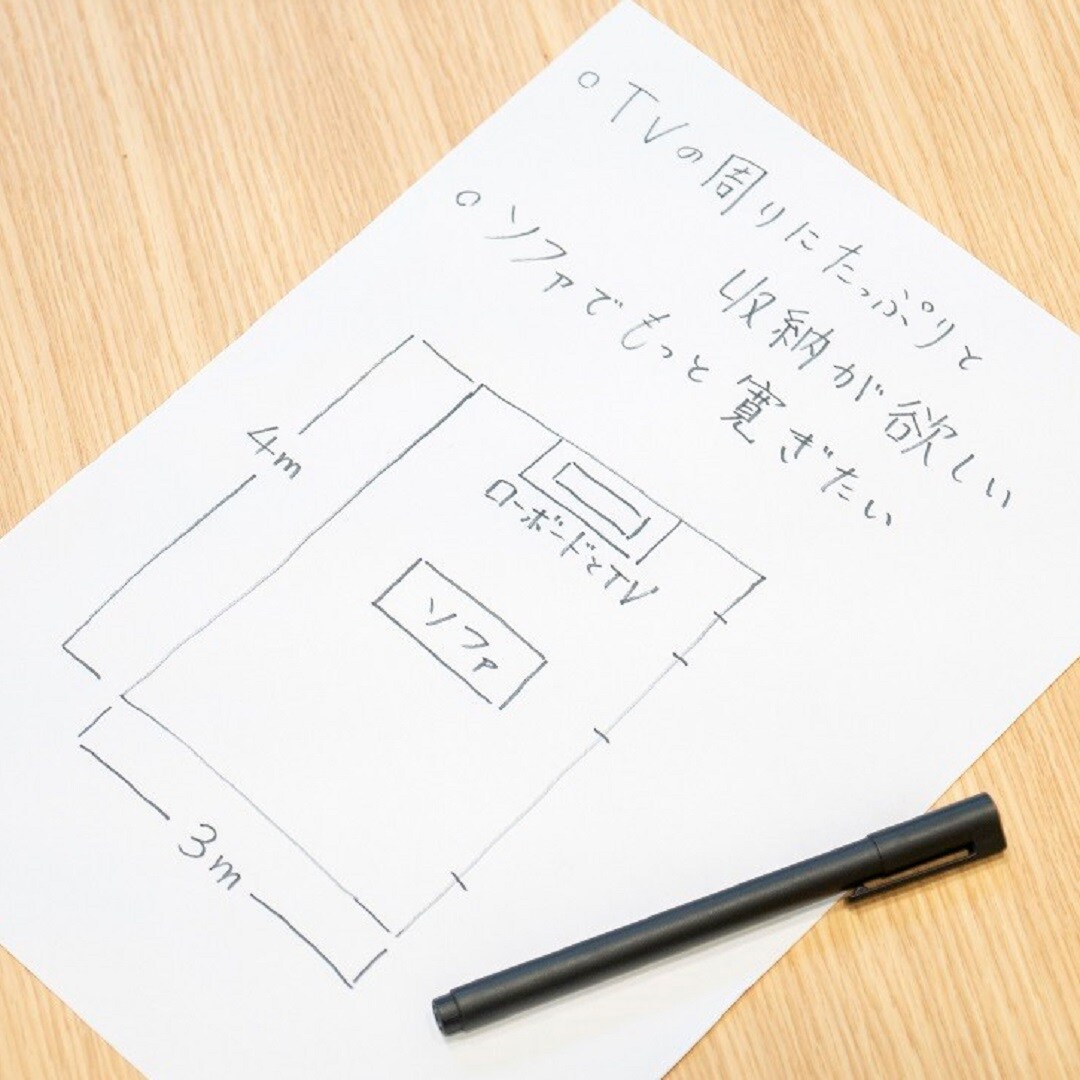 ○TVの周りにたっぷりと
収納が欲しい
○ソファでもっと寛ぎたい
4m
ローボードとTV
ソファ
3m